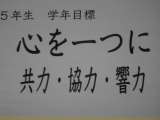 5年生 学年目標
心を一つに
共力・協力・響力